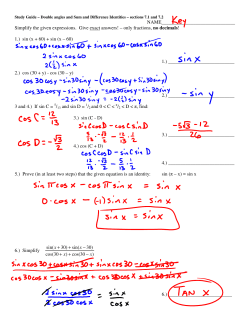 Study Guide – Double angles and Sum and Difference Identities – sections 7.1 and 7.2
NAME Key
Simplify the given expressions. Give exact answers! – only fractions, no decimals!
1.) sin (x + 60) + sin (x – 60)
sin x cos 60 + cos x sin 60 + sin x cos 60 - cos x sin 60
2 sin x cos 60
2 (1/2) sin x
1. sin x
2.) cos (30 + y) - cos (30 – y)
cos 30 cos y - sin 30 sin y - (cos 30 cos y + sin 30 sin y)
cos 30 cos y - sin 30 sin y - cos 30 cos y - sin 30 sin y
-2 sin 30 sin y = -2 (1/2) sin y
2. - sin y
cos C = 12/13
cos D = -√3/2
3.) sin (C - D)
sin C cos D - cos C sin D
3. -5√3 - 12 / 26
4.) cos (C + D)
cos C cos D - sin C sin D
4.
5.) Prove (in at least two steps) that the given equation is an identity. sin (π – x) = sin x
sin π cos x - cos π sin x = sin x
0 · cos x - (-1) sin x = sin x
sin x = sin x
6.) Simplify sin(x + 30) + sin(x – 30) / cos(30 + x) + cos(30 – x)
sin x cos 30 + cos x sin 30 + sin x cos 30 - cos x sin 30
cos 30 cos x - sin 30 sin x + cos 30 cos x + sin 30 sin x
2 sin x cos 30 / 2 cos 30 cos x = sin x / cos x
6. TAN X